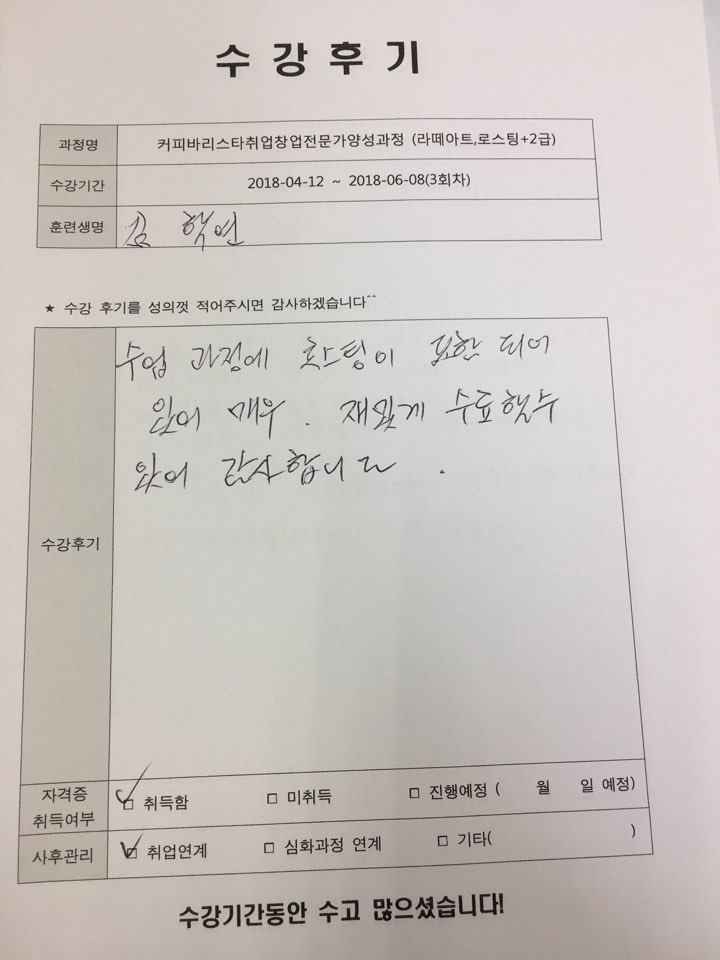 수강후기
과정명 커피바리스타취업창업전문가양성과정 (라떼아트,로스팅+2급)
수강기간 2018-04-12 ~ 2018-06-08(3회차)
훈련생명 김 학연
★ 수강 후기를 성의껏 적어주시면 감사하겠습니다^^
수강후기
수업 과정에 로스팅이 포함 되어
있어 매우 . 재밌게 수료했수
있어 감사합니다 .
자격증
취득여부
□ 취득함 □ 미취득 □ 진행예정 ( 월 일 예정)
사후관리 □ 취업연계 □ 심화과정 연계 □ 기타( )
수강기간동안 수고 많으셨습니다!